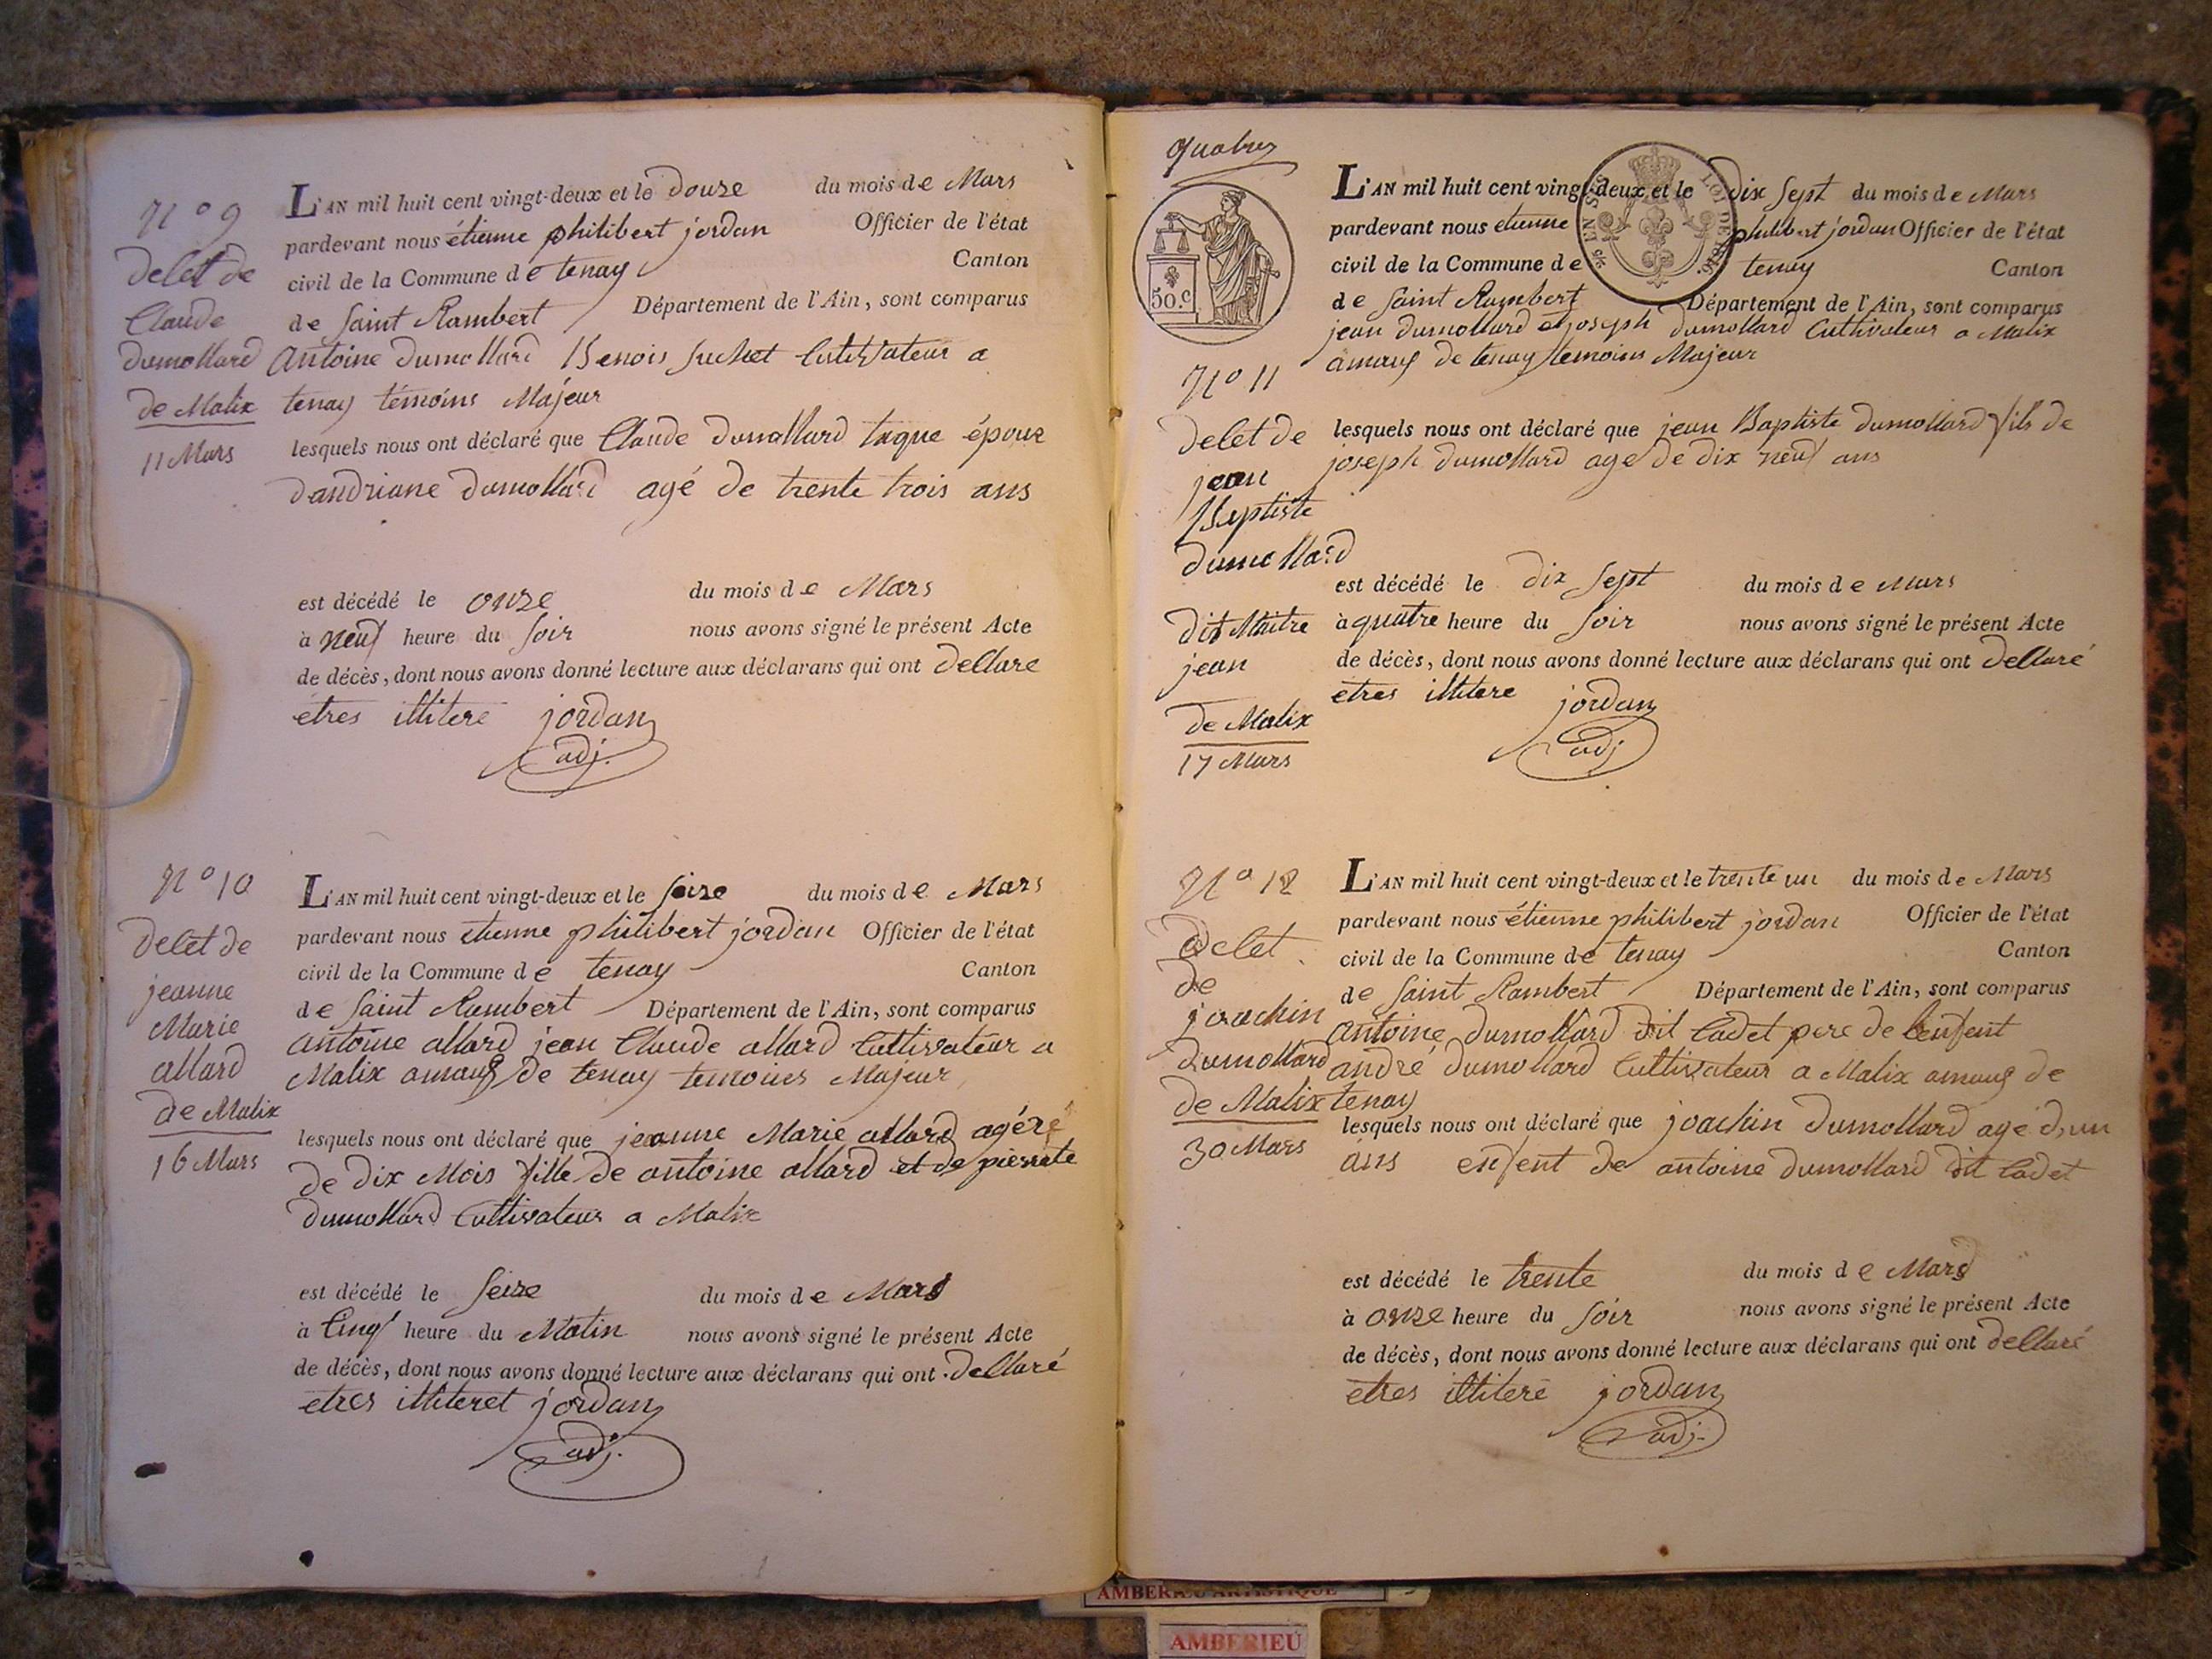 N° 9
Decet de
Claude
dumollard
de Malix
11 Mars
L'AN mil huit cent vingt-deux et le douze du mois de Mars
pardevant nous étienne philibert jordan Officier de l'état
civil de la Commune de tenay Canton
de Saint Rambert Département de l'Ain, sont comparus
Antoine dumollard Benois Suchet Cultivateur a
tenay témoins Majeur
lesquels nous ont déclaré que Claude dumollard épour
dandriane dumollard agé de trente trois ans
est décédé le onze du mois de Mars
à neuf heure du soir nous avons signé le présent Acte
de décès, dont nous avons donné lecture aux déclarans qui ont declare
etres illitere jordan
adj.
N° 10
decet de
jeanne
Marie
allard
de Malix
16 Mars
L'AN mil huit cent vingt-deux et le seize du mois de Mars
pardevant nous etienne philibert jordan Officier de l'état
civil de la Commune de tenay Canton
de Saint Rambert Département de l'Ain, sont comparus
antoine allard jean Claude allard Cultivateur a
Malix amaux de tenay temoins Majeur
lesquels nous ont déclaré que jeanne Marie allard
de dix Mois fille de antoine allard et de pierrete
dumollard Cultivateur a Malix
est décédé le seize du mois de Mars
à Cinq heure du Matin nous avons signé le présent Acte
de décès, dont nous avons donné lecture aux déclarans qui ont declaré
etres illiteret jordan
adj.
quatre
50.c
EN SUS LOI DE 1816
N° 11
decet de
jean
Baptiste
dumollard
dit Maitre
jean
de Malix
17 Mars
L'AN mil huit cent vingt-deux et le dix sept du mois de Mars
pardevant nous etienne philibert jordan Officier de l'état
civil de la Commune de tenay Canton
de Saint Rambert Département de l'Ain, sont comparus
jean dumollard et joseph dumollard Cultivateur a Malix
amaux de tenay temoins Majeur
lesquels nous ont déclaré que jean Baptiste dumollard fils de
joseph dumollard age de dix neuf ans
est décédé le dix sept du mois de Mars
à quatre heure du soir nous avons signé le présent Acte
de décès, dont nous avons donné lecture aux déclarans qui ont declaré
etres illitere jordan
adj
N° 12
decet
de
joachin
dumollard
de Malix
30 Mars
L'AN mil huit cent vingt-deux et le trente un du mois de Mars
pardevant nous étienne philibert jordan Officier de l'état
civil de la Commune de tenay Canton
de Saint Rambert Département de l'Ain, sont comparus
antoine dumollard dit Cadet pere de lenfent
andré dumollard Cultivateur a Malix amaux de
tenay
lesquels nous ont déclaré que joachin dumollard age d,un
ans enfent de antoine dumollard dit Cadet
est décédé le trente du mois de Mars
à onze heure du soir nous avons signé le présent Acte
de décès, dont nous avons donné lecture aux déclarans qui ont declaré
etres illitere jordan
adj.
AMBERIEU ARTISTIQUE
AMBERIEU